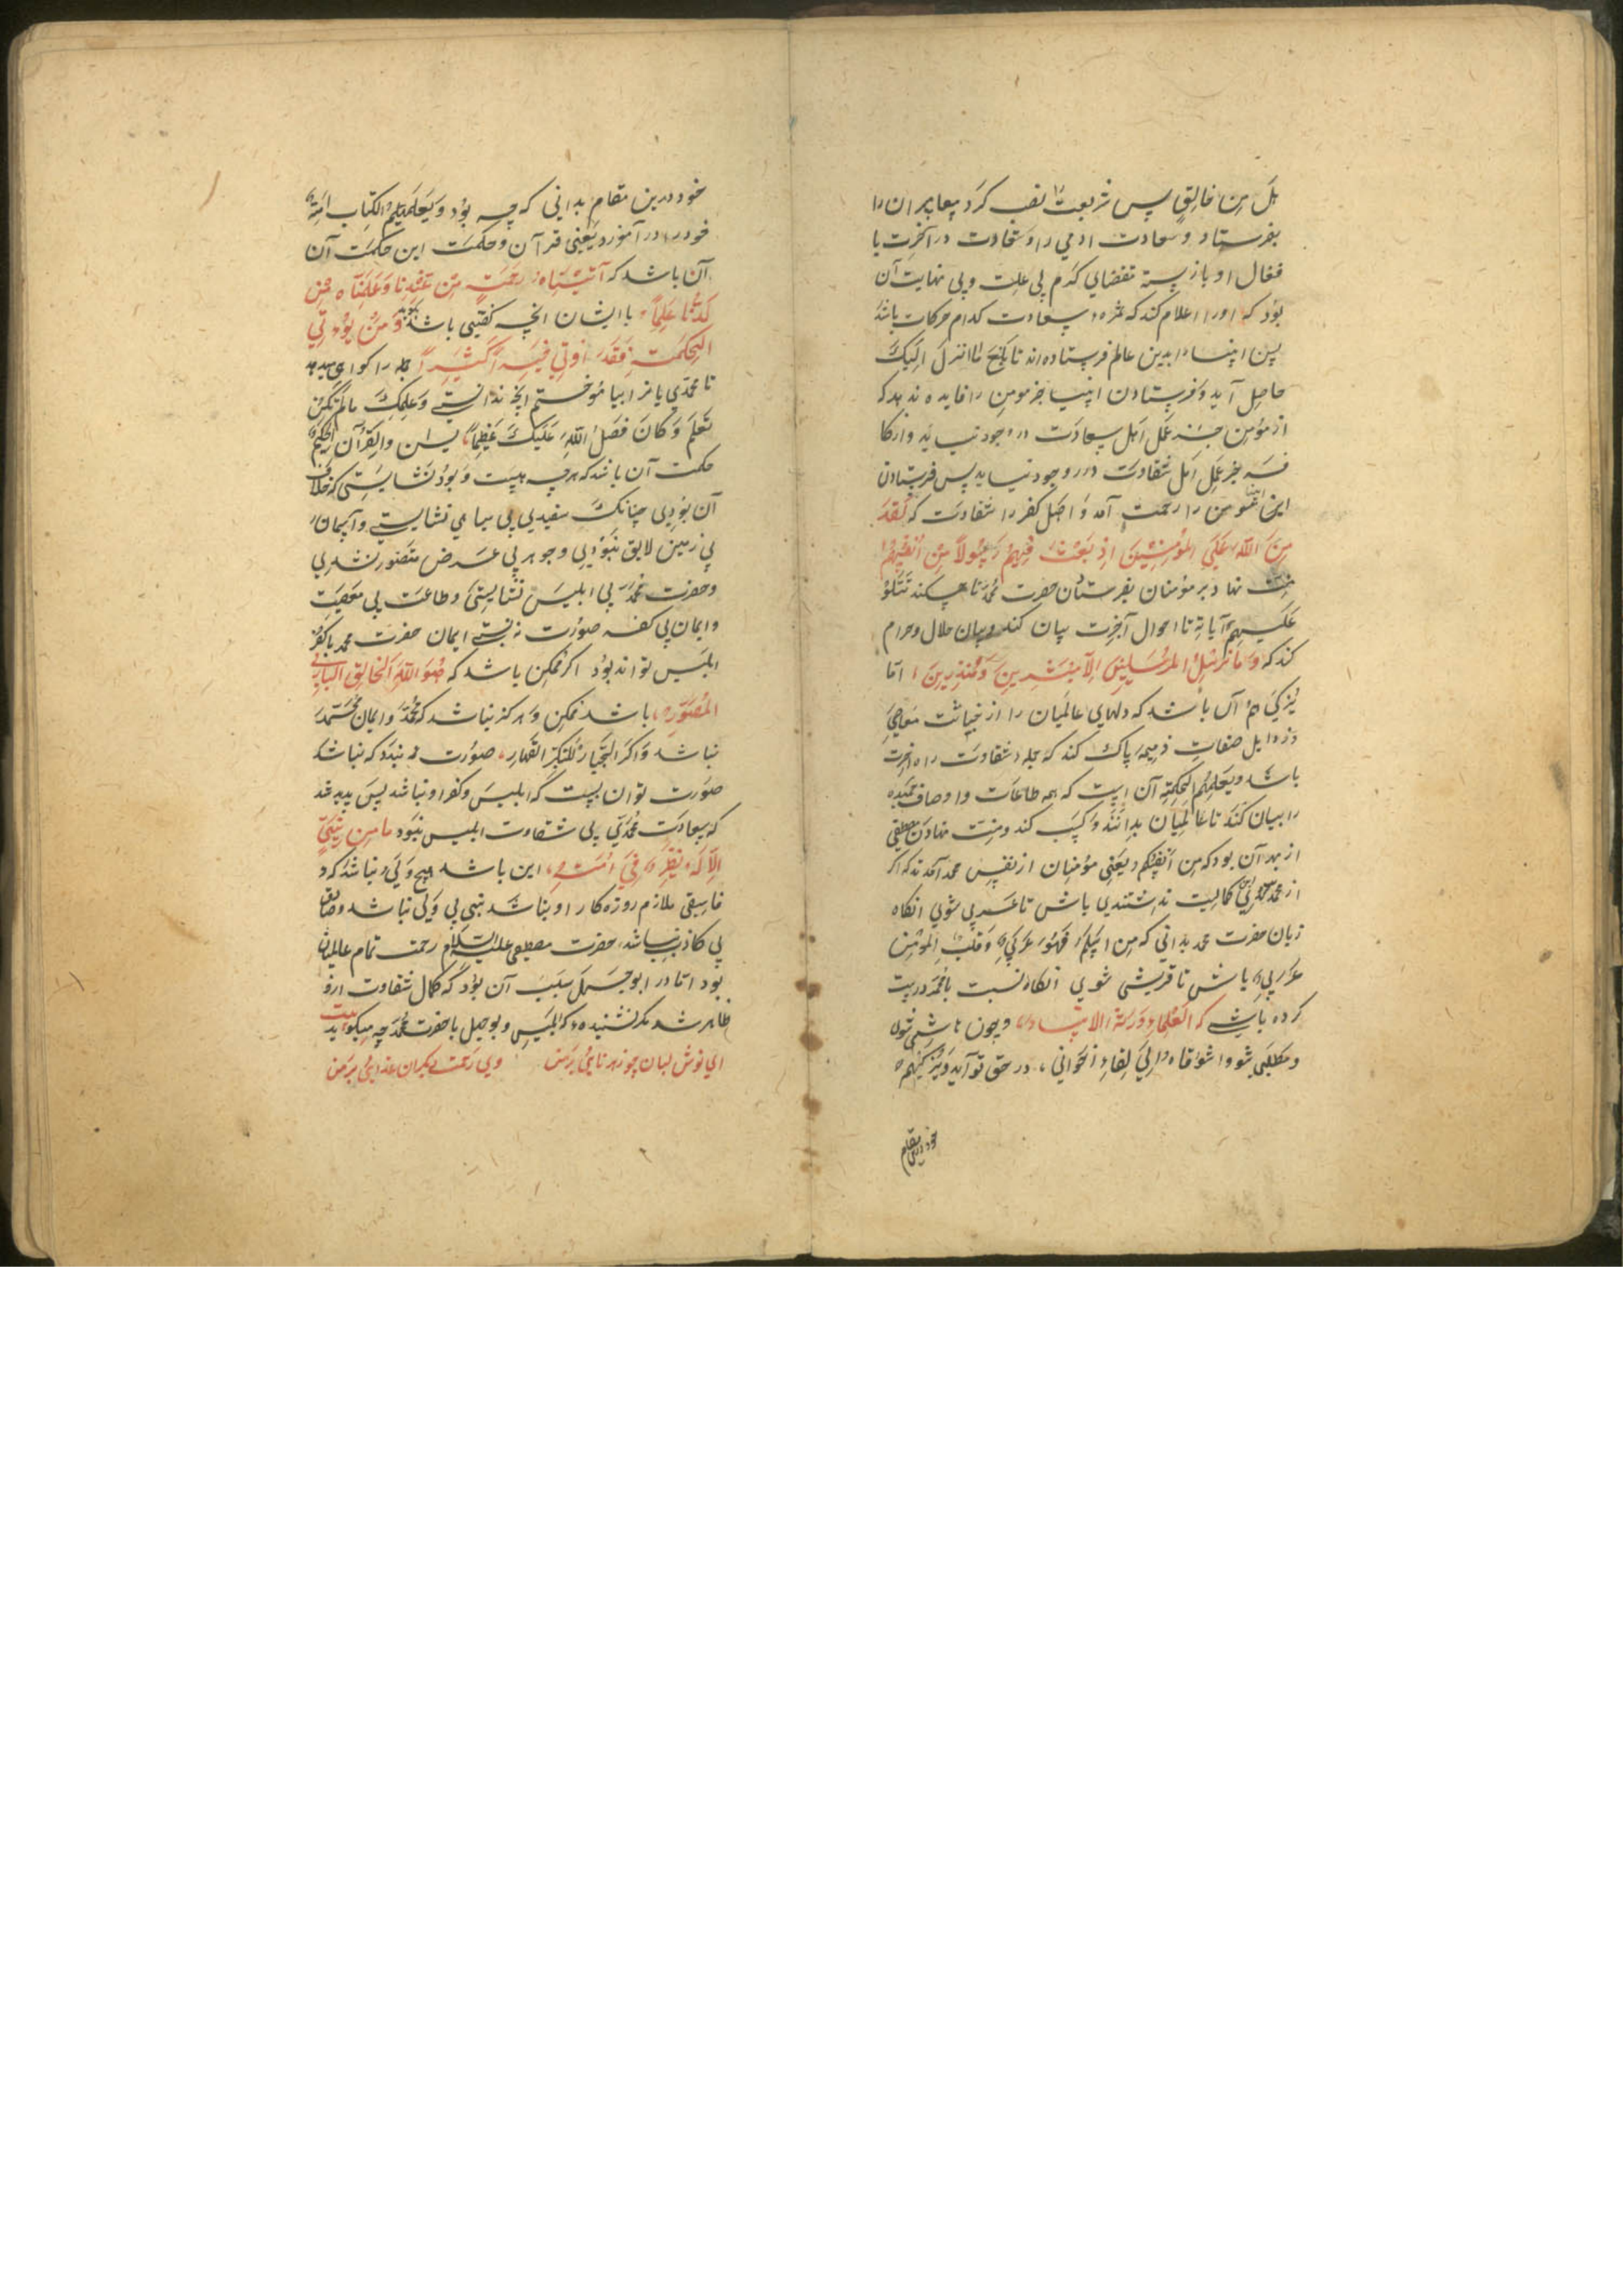 بل من خالق پس شریعت نصب کرد پیغامبران را
بفرستاد و سعادت ادمی را و شقاوت در آخرت با
فعال او باز بسته تقضای کرم بی علت و بی نهایت آن
بود که اورا اعلام کند که ثمره سعادت کدام حرکات باشد
پس انبیا را بدین عالم فرستاده اند تا بلغ ما انزل الیک
حاصل آید و فرستادن انبیا جز مومن را فایده ندهد که
از مؤمن جز عمل اهل سعادت در وجود نیاید و از کا
فر جز عمل اهل شقاوت در وجود نیاید پس فرستادن
این انبیا مومن را رحمت آمد و اصل کفر را شقاوت که لقد
من الله علی المؤمنین اذ بعث فیهم رسولا من انفسهم
منت نهاد بر مؤمنان بفرستادن حضرت محمد تا چه کند تتلو
علیهم آیاته تا احوال آخرت بیان کند و بیان حلال و حرام
کند که و ما نرسل المرسلین الا مبشرین و منذرین اما
یزکیهم آن باشد که دلهای عالمیان را از خباثت معاصی
و رذایل صفات ذمیمه پاک کند که جمله شقاوت راه آخرت
باشد و یعلمهم الحکمة آن است که همه طاعات و اوصاف حمیده
را بیان کند تا عالمیان بدانند و کسب کند و منت نهادن مصطفی
از بهر آن بود که من انفسکم یعنی مؤمنان از نفس محمد آمدند که اگر
از محمد کمالیت نداشتندی باش تا عربی شوی انکاه
زبان حضرت محمد بدانی که من اسلم فهو عربی و قلب المؤمن
عربی باش تا قریشی شوی انکاه نسبت با محمد درست
کرده باشی که العلماء ورثة الانبیاء و چون هاشمی شوی
و مطلبی شوی واشوقاه الی لقاء اخوانی در حق تو آید و یزکیهم
خود درین مقام
خود درین مقام بدانی که چه بود و یعلمهم الکتاب امت
خود را در آموزد یعنی قرآن و حکمت این حکمت آن
آن باشد که آتیناه رحمة من عندنا و علمناه من
لدنا علما با ایشان انچه گفتیی باشد بگوید و من یؤتی
الحکمة فقد اوتی خیرا کثیرا جمله را گواهی میدهد
تا محمدی باز ابیاموختم انچه ندانستی و علمک ما لم تکن
تعلم و کان فضل الله علیک عظیما یس والقرآن الحکیم
حکمت آن باشد که هرچه هست و بود نشایستی که خلاف
آن بودی چنانک سفیدی بی سیاهی نشایستی و آسمان
بی زمین لایق نبودی و جوهر بی عرض متصور نشدی
و حضرت محمد بی ابلیس نشایستی و طاعت بی معصیت
و ایمان بی کفر صورت نه بستی ایمان حضرت محمد با کفر
ابلیس تواند بود اگر ممکن باشد که هو الله الخالق الباری
المصور باشد ممکن و هرگز نباشد که محمد و ایمان محمد
نباشد و اگر الجبار المتکبر القهار صورت نه بندد که نباشد
صورت توان بست که ابلیس و کفر او نباشد پس پدید شد
که سعادت محمدی بی شقاوت ابلیس نبود ما من نبی
الا له نظیر فی امته این باشد هیچ ولی نباشد که و
فاسقی ملازم روزه کار او نباشد نبی بی ولی نباشد و صادق
بی کاذب نباشد حضرت مصطفی علیه السلام رحمت تمام عالمیان
بود اما در ابوجهل سبب آن بود که کمال شقاوت ازو
ظاهر شد مگر نشنیده که ابلیس و بوجهل با حضرت محمد چه میگوید بیت
ای نوش لبان چو زهر نابی بر من وی رحمت دیگران عذابی بر من